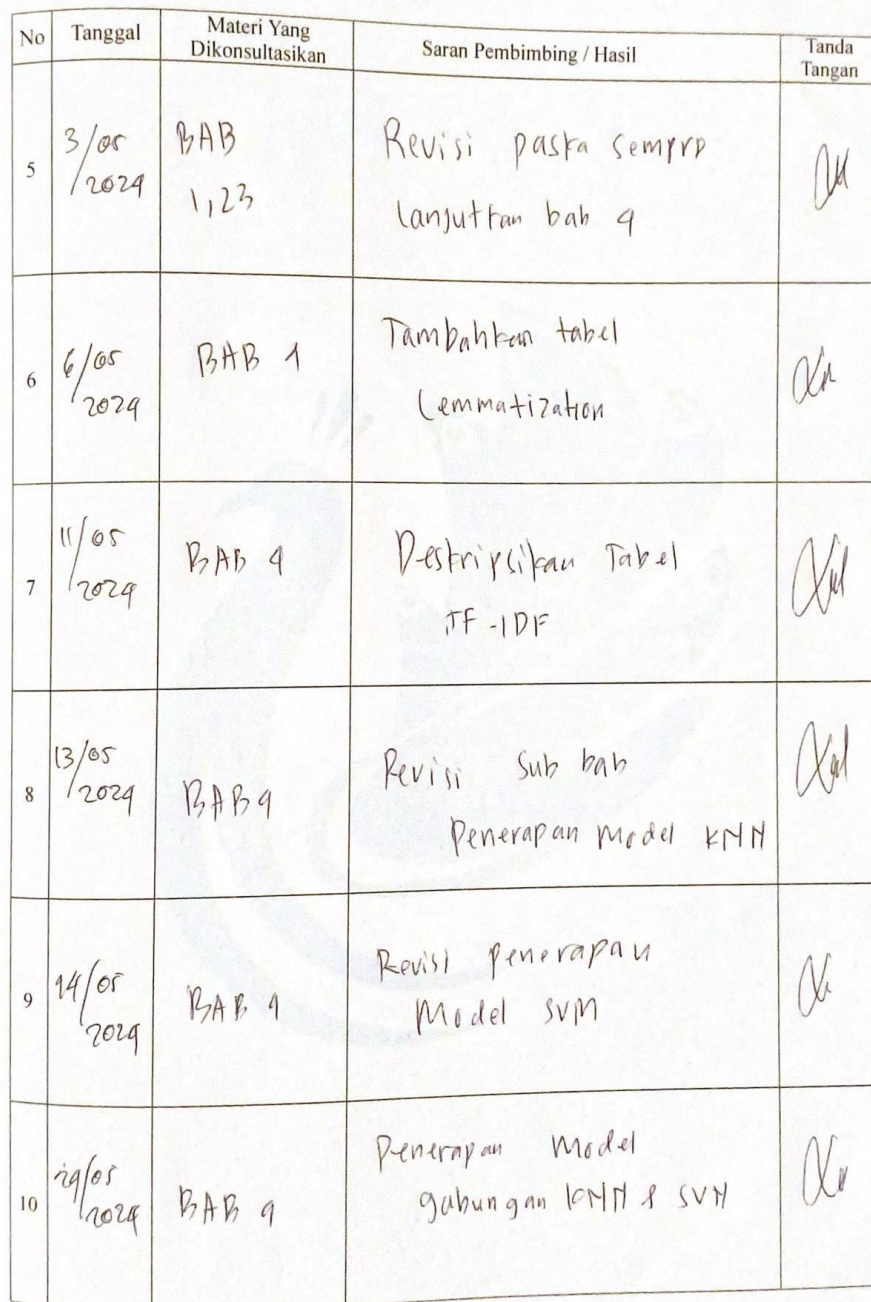 No Tanggal Materi Yang Dikonsultasikan Saran Pembimbing / Hasil Tanda Tangan
5 3/05 2024 BAB 1,2,3 Revisi paska sempro
lanjutkan bab 4
6 6/05 2024 BAB 4 Tambahkan tabel
Lemmatization
7 11/05 2024 BAB 4 Deskripsikan Tabel
TF-IDF
8 13/05 2024 BAB 4 Revisi Sub bab
Penerapan Model KNN
9 14/05 2024 BAB 4 Revisi penerapan
Model SVM
10 /05 2024 BAB 4 Penerapan Model
gabungan KNN & SVM